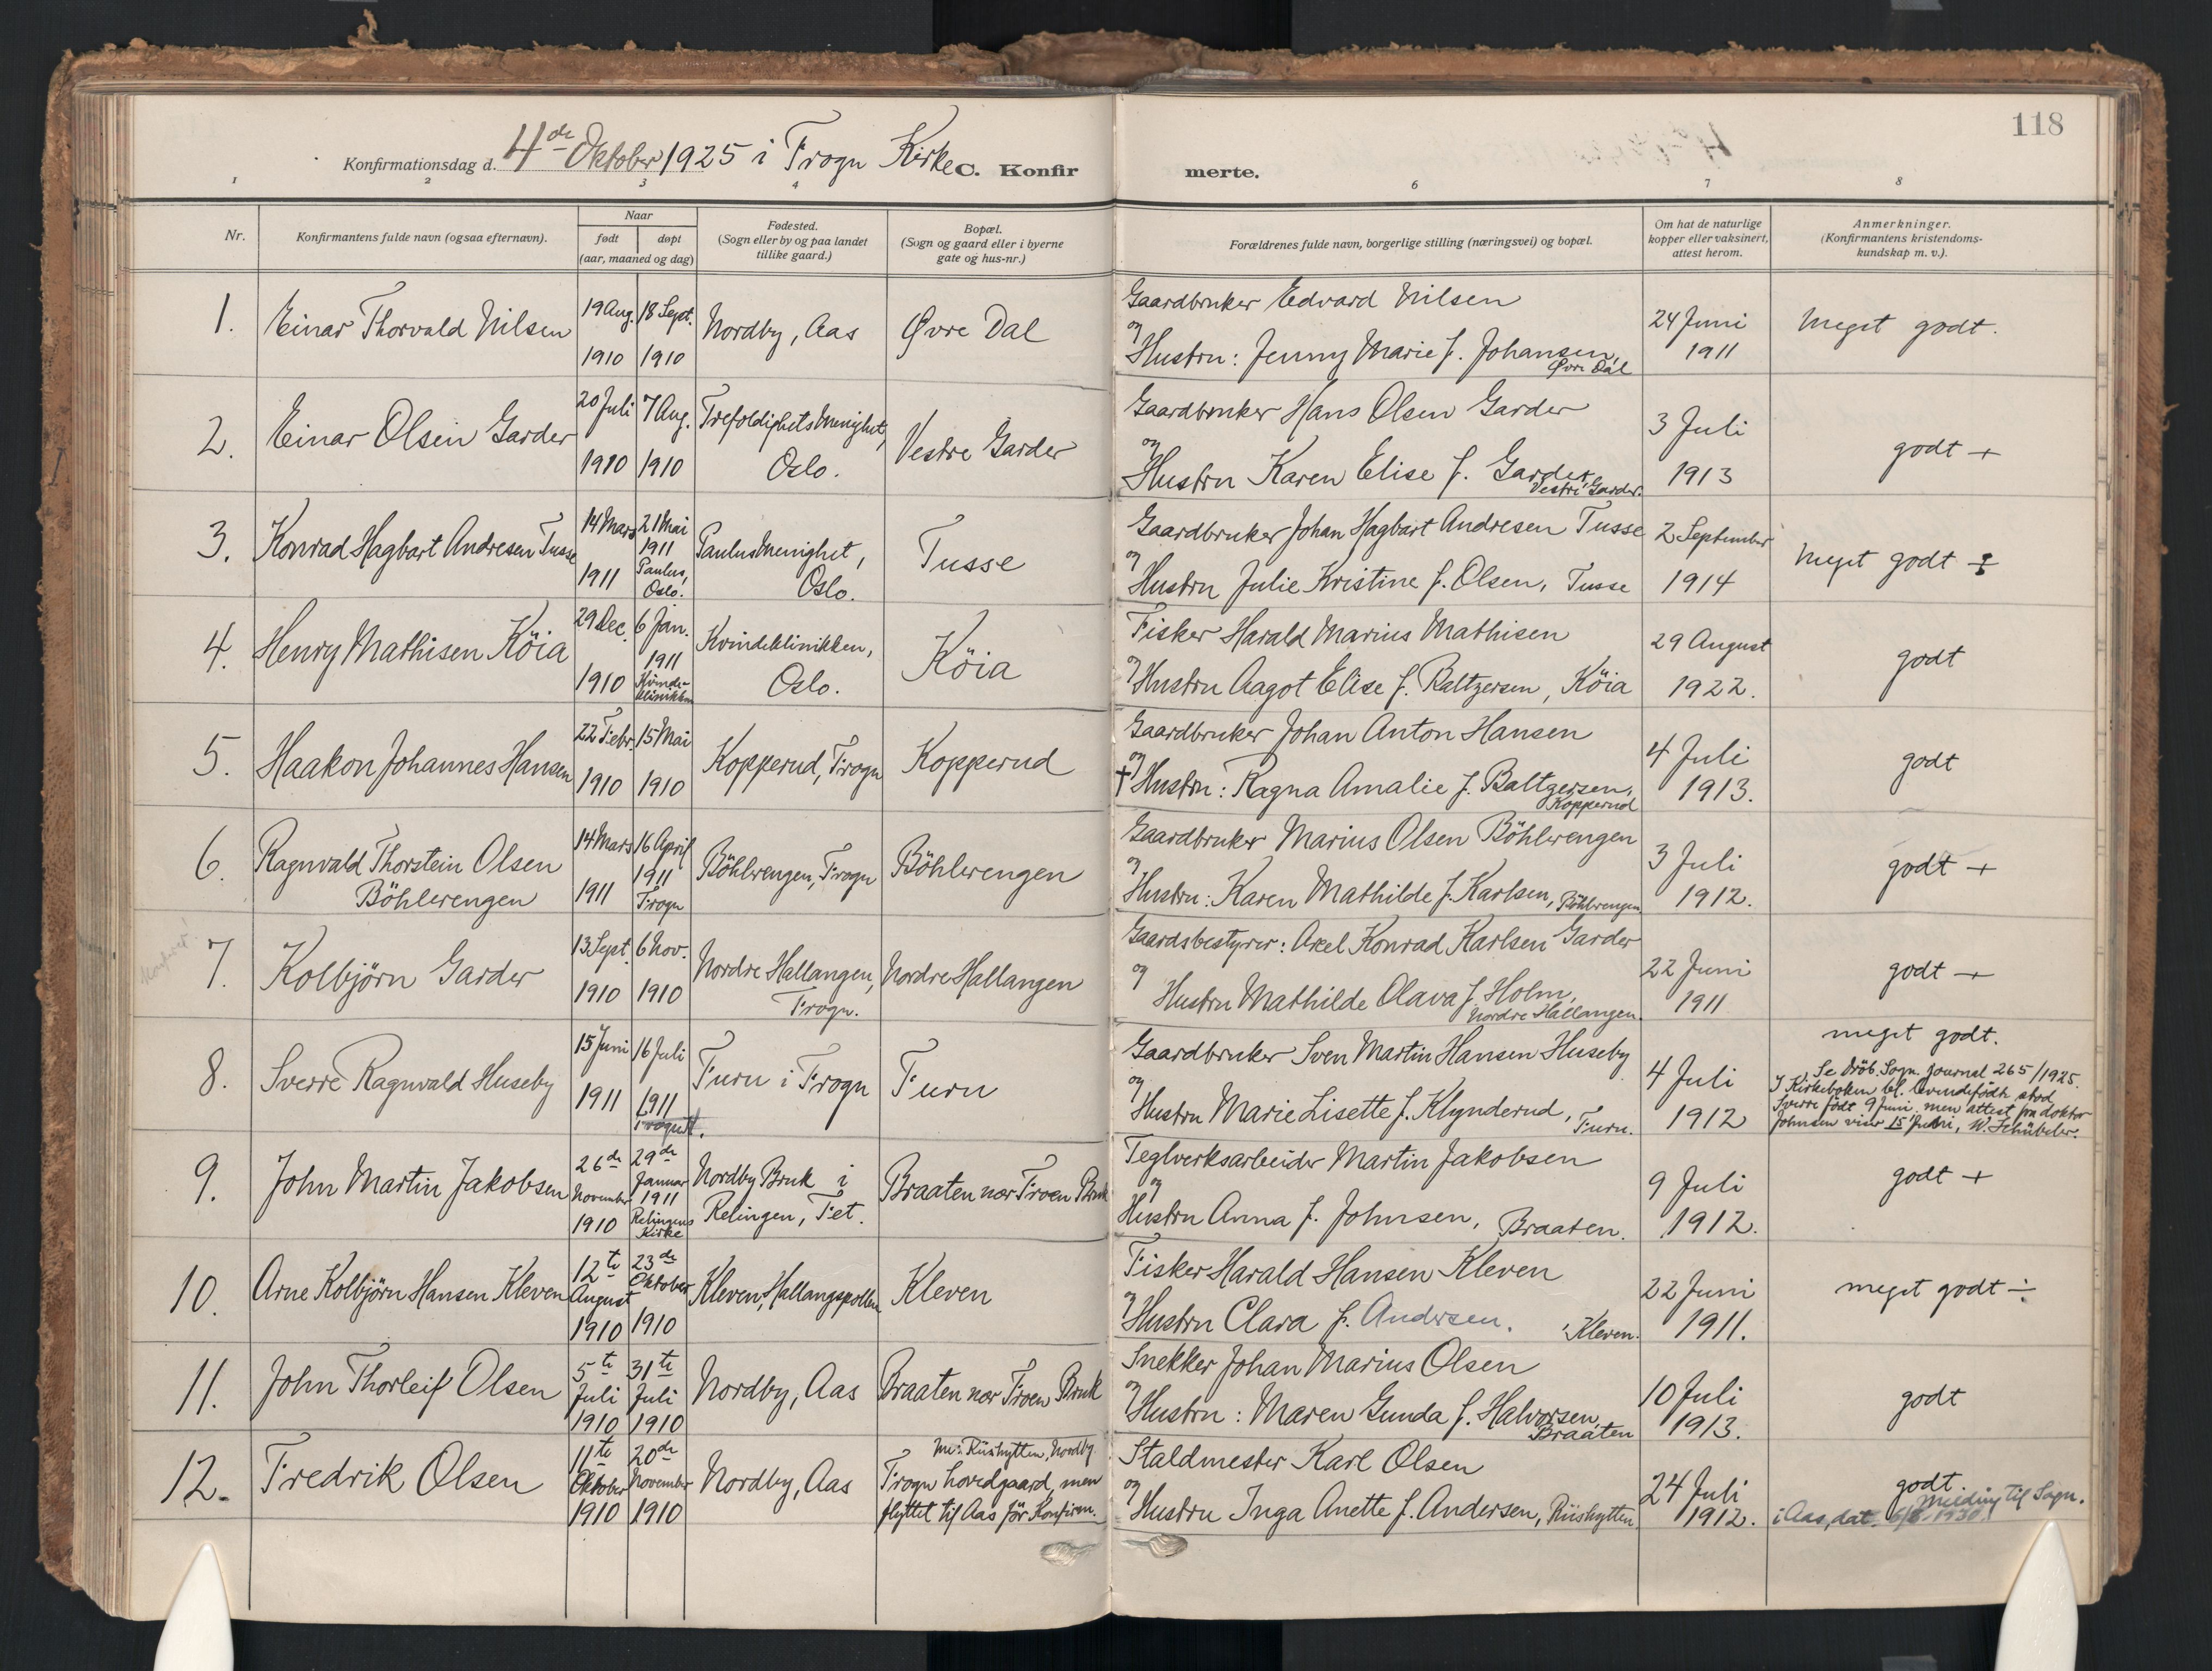 118
Konfirmationsdag d. 4de Oktober 1925 i Frogn Kirke C. Konfirmerte.
1 2 3 4 6 7 8
Nr.
Konfirmantens fulde navn (ogsaa efternavn).
Naar
født døpt
(aar, maaned og dag)
Fødested.
(Sogn eller by og paa landet
tillike gaard.)
Bopæl.
(Sogn og gaard eller i byerne
gate og hus-nr.)
Forældrenes fulde navn, borgerlige stilling (næringsvei) og bopæl.
Om hat de naturlige
kopper eller vaksinert,
attest herom.
Anmerkninger.
(Konfirmantens kristendoms-
kundskap m. v.).
1.
Einar Thorvald Nilsen
19 Aug.
1910
18 Sept.
1910
Nordby, Aas
Øvre Dal
Gaardbruker Edvard Nilsen
og
Hustru: Jenny Marie f. Johansen,
Øvre Dal
24 Juni
1911
Meget godt.
2.
Einar Olsen Garder
20 Juli
1910
7 Aug.
1910
Trefoldighets Menighet,
Oslo.
Vestre Garder
Gaardbruker Hans Olsen Garder
og
Hustru Karen Elise f. Garder,
Vestre Garder.
3 Juli
1913
godt +
3.
Konrad Hagbart Andresen Tusse
14 Mars
1911
21 Mai
1911
Paulus,
Oslo.
Paulus Menighet,
Oslo.
Tusse
Gaardbruker Johan Hagbart Andresen Tusse
og
Hustru Julie Kristine f. Olsen, Tusse
2 September
1914
Meget godt ÷
4.
Henry Mathisen Köia
29 Dec.
1910
6 Jan.
1911
Kvinde-
klinikken
Kvindeklinikken,
Oslo.
Köia
Fisker Harald Marius Mathisen
og
Hustru Aagot Elise f. Baltzersen, Köia
29 August
1922.
godt
5.
Haakon Johannes Hansen
22 Febr.
1910
15 Mai
1910
Kopperud, Frogn
Kopperud
Gaardbruker Johan Anton Hansen
og
† Hustru: Ragna Amalie f. Baltzersen,
Kopperud
4 Juli
1913.
godt
6.
Ragnvald Thorstein Olsen
Böhlerengen
14 Mars
1911
16 April
1911
Frogn
Böhlerengen, Frogn
Böhlerengen
Gaardbruker Marius Olsen Böhlerengen
og
Hustru: Karen Mathilde f. Karlsen, Böhlerengen
3 Juli
1912.
godt +
7.
Kolbjörn Garder
13 Sept.
1910
6 Nov.
1910
Nordre Hallangen,
Frogn.
Nordre Hallangen
Gaardsbestyrer: Axel Konrad Karlsen Garder
og
Hustru Mathilde Olava f. Holm,
Nordre Hallangen.
22 Juni
1911
godt +
8.
Sverre Ragnvald Huseby
15 Juni
1911
16 Juli
1911
Furu i Frogn
Furu
Gaardbruker Sven Martin Hansen Huseby
og
Hustru Marie Lisette f. Klynderud, Furu.
4 Juli
1912
meget godt.
Se Dröb. Sogn. Journal 265/1925.
I Kirkeboken bl. levendefödte stod
Sverre födt 9 Juni, men attest fra doktor
Johnsen viser 15 Juni, W. Schübeler.
9.
John Martin Jakobsen
26de
November
1910
29de
Januar
1911
Relingens
Kirke
Nordby Bruk i
Relingen, Fet.
Braaten nær Froen Bruk
Teglverksarbeider Martin Jakobsen
og
Hustru Anna f. Johnsen, Braaten.
9 Juli
1912.
godt +
10.
Arne Kolbjörn Hansen Kleven
12te
August
1910
23de
Oktober
1910
Kleven, Hallangspollen
Kleven
Fisker Harald Hansen Kleven
og
Hustru Clara f. Andersen. Kleven.
22 Juni
1911.
meget godt ÷
11.
John Thorleif Olsen
5te
Juli
1910
31te
Juli
1910
Nordby, Aas
Braaten nær Froen Bruk
Snekker Johan Marius Olsen
og
Hustru: Maren Gunda f. Halvorsen,
Braaten
10 Juli
1913.
godt
12.
Fredrik Olsen
11te
Oktober
1910
20de
November
1910
Nordby, Aas
Riishytten, Nordby
Frogn hovedgaard, men
flyttet til Aas för Konfirm.
Staldmester Karl Olsen
og
Hustru Inga Anette f. Andersen, Riishytten
24 Juli
1912.
godt.
Melding til Sogn.
i Aas, dat. 6/8 1930.